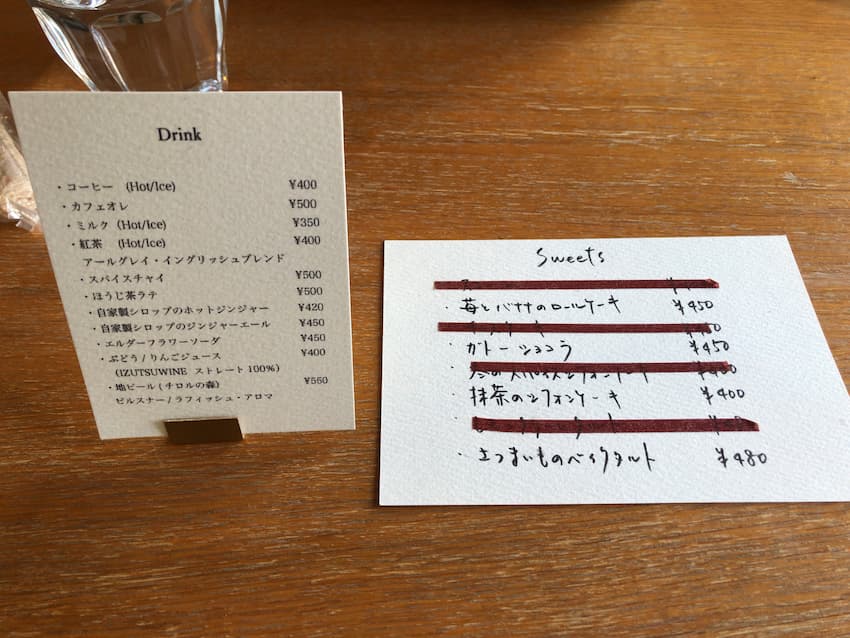 Drink
・コーヒー (Hot/Ice) ¥400
・カフェオレ ¥500
・ミルク (Hot/Ice) ¥350
・紅茶 (Hot/Ice) ¥400
アールグレイ・イングリッシュブレンド
・スパイスチャイ ¥500
・ほうじ茶ラテ ¥500
・自家製シロップのホットジンジャー ¥420
・自家製シロップのジンジャーエール ¥450
・エルダーフラワーソーダ ¥450
・ぶどう/りんごジュース ¥400
(IZUTSUWINE ストレート100%)
・地ビール(チロルの森) ¥550
ピルスナー/ラフィッシュ・アロマ
Sweets
・苺とバナナのロールケーキ ¥450
・ガトーショコラ ¥450
・抹茶のシフォンケーキ ¥400
・さつまいものベイクタルト ¥480